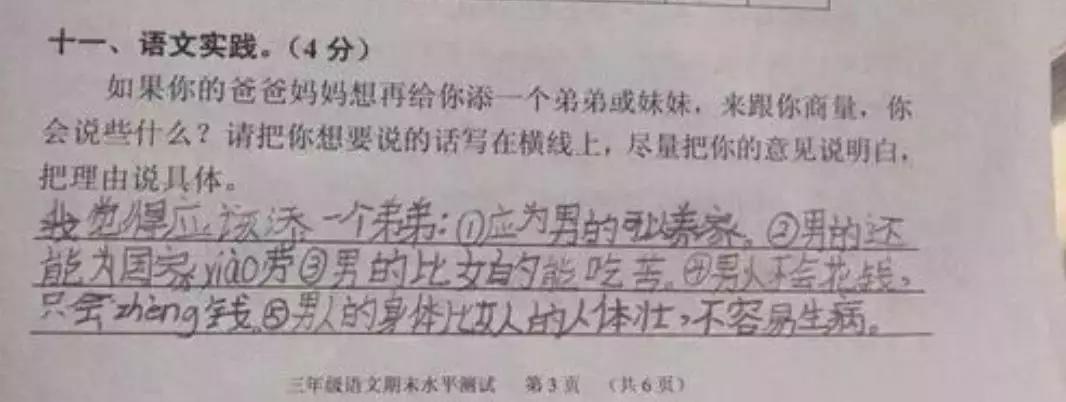 十一、语文实践。（4分）
如果你的爸爸妈妈想再给你添一个弟弟或妹妹，来跟你商量，你
会说些什么？请把你想要说的话写在横线上，尽量把你的意见说明白，
把理由说具体。
我觉得应该添一个弟弟：①应为男的可以养家。②男的还
能为国家yiào劳③男的比女的能吃苦。④男人不会花钱，
只会zhèng钱。⑤男人的身体比女人的人体壮，不容易生病。
三年级语文期末水平测试 第3页 （共6页）